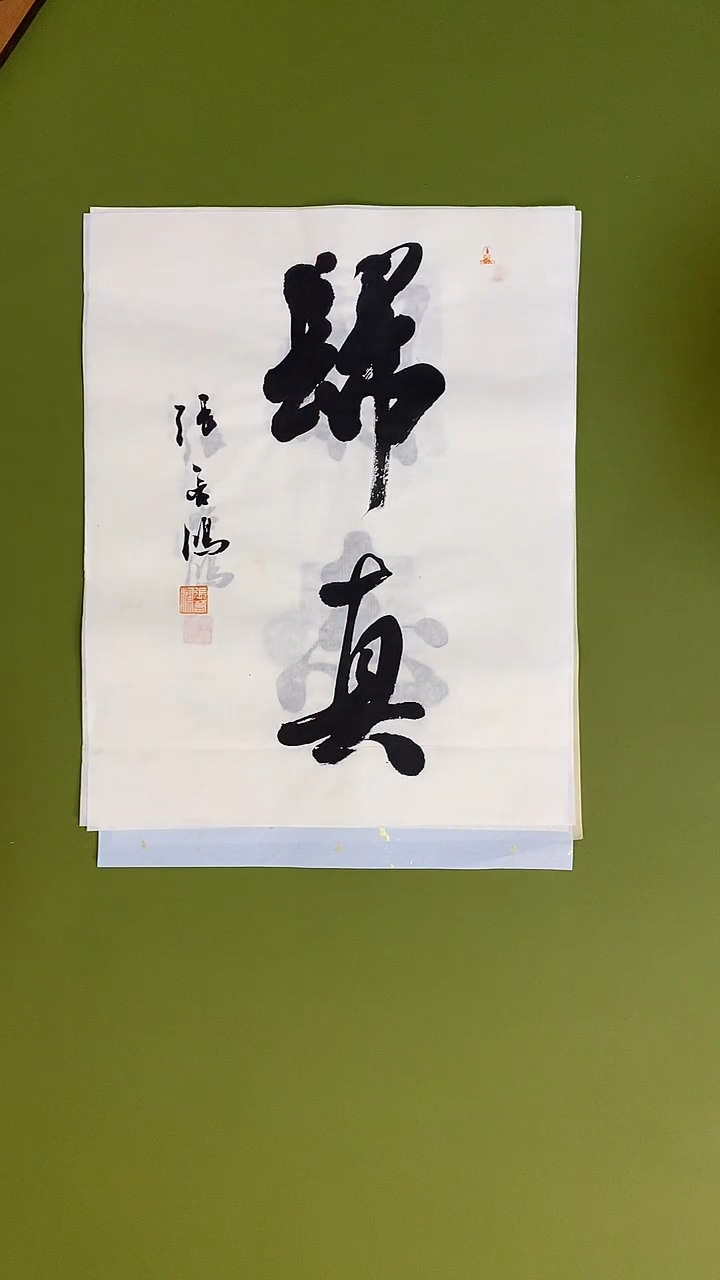 歸真
張吞鴻